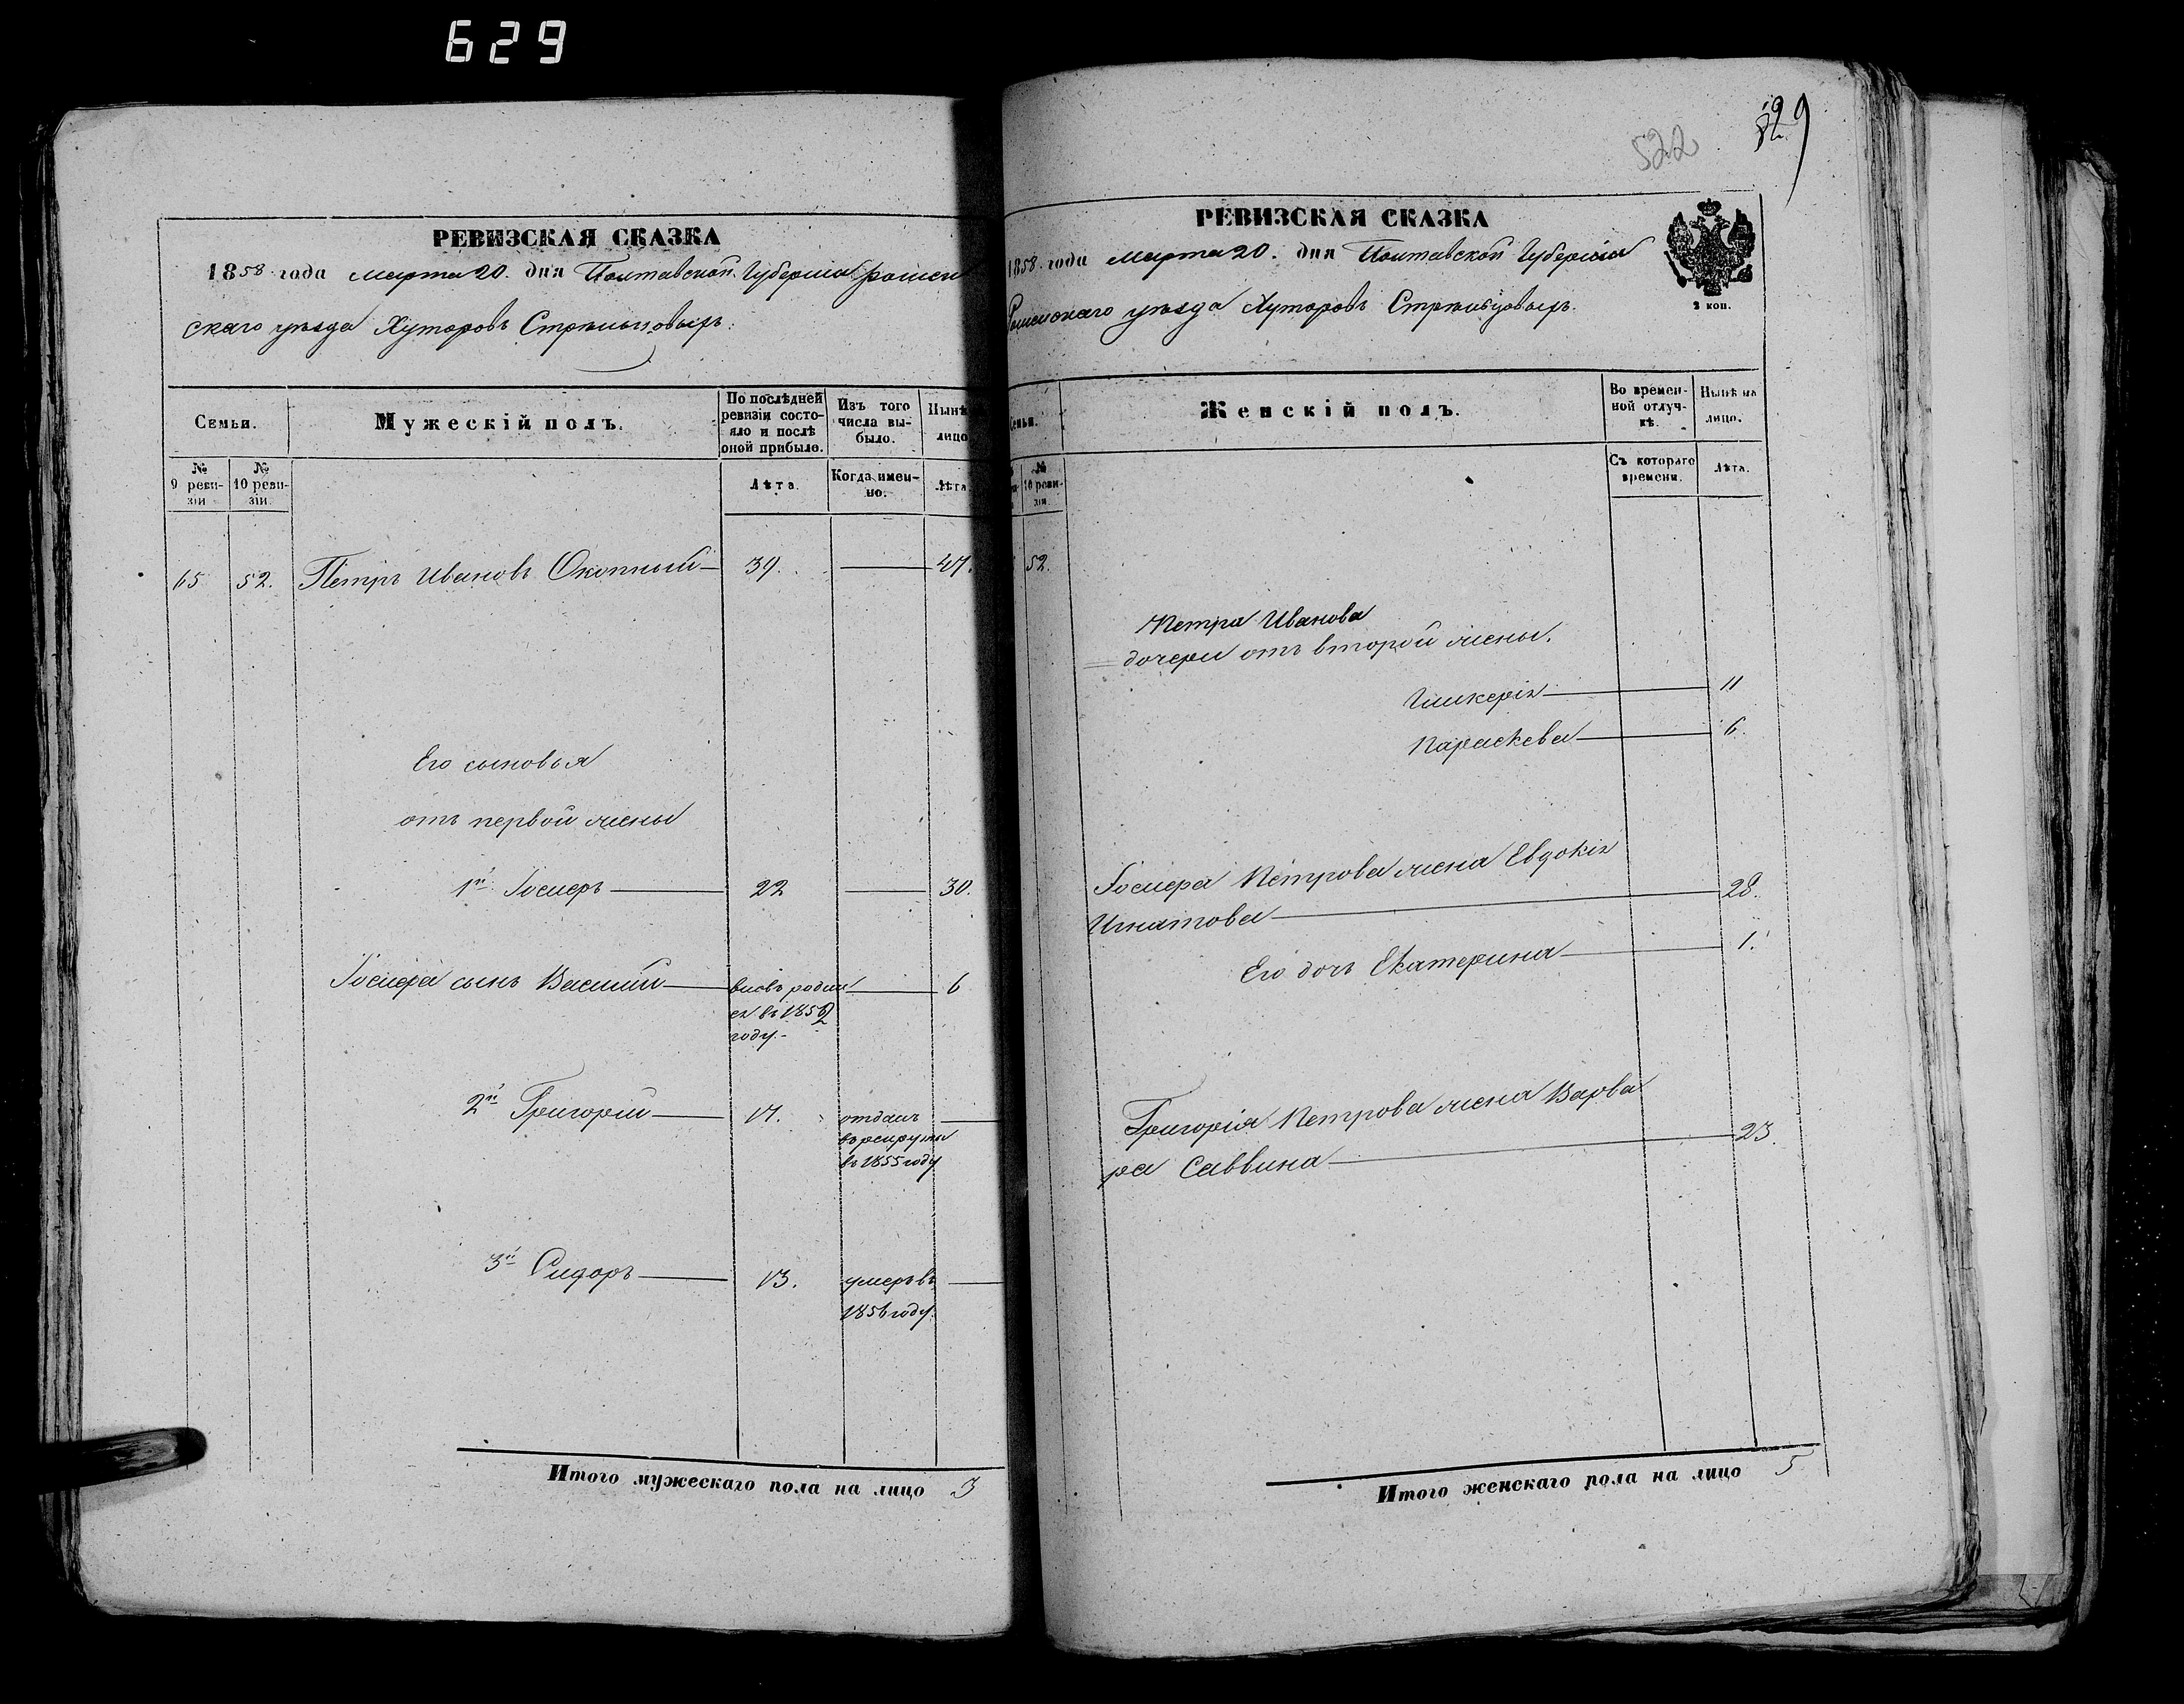 629
РЕВИЗСКАЯ СКАЗКА
1858 года марта 20. дня Полтавской Губерніи Ромен
скаго уѣзда Хуторовъ Стрѣльцовыхъ.
Семьи.
Мужескій полъ.
По послѣдней ревизіи состояло и послѣ оной прибыло.
Изъ того числа выбыло.
Нынѣ
лицо
№ 9 ревизіи
№ 10 ревизіи.
Лѣта.
Когда именно.
Лѣта.
65 52. Петръ Ивановъ Окопный 39. 47.
Его сыновья
отъ первой жены
1й Іосифъ 22 30.
Іосифа сынъ Василій вновь родил 6
ся въ 1852
году.
2й Григорій 17. отданъ
въ рекруты
въ 1855 году
3й Сидоръ 13. умеръ въ
1856 году.
Итого мужескаго пола на лицо 3
522
529
РЕВИЗСКАЯ СКАЗКА
1858 года марта 20. дня Полтавской Губерніи
Роменскаго уѣзда Хуторовъ Стрѣльцовыхъ.
2 коп.
Семьи.
Женскій полъ.
Во временной отлучкѣ.
Нынѣ на лицо.
№ 10 ревизіи
Съ котораго времени.
Лѣта.
52.
Петра Иванова
дочери отъ второй жены.
Гликерія 11
Параскева 6.
Іосифа Петрова жена Евдокія
Игнатова 28.
Его дочь Екатерина 1.
Григорія Петрова жена Варва
ра Саввина 23.
Итого женскаго пола на лицо 5